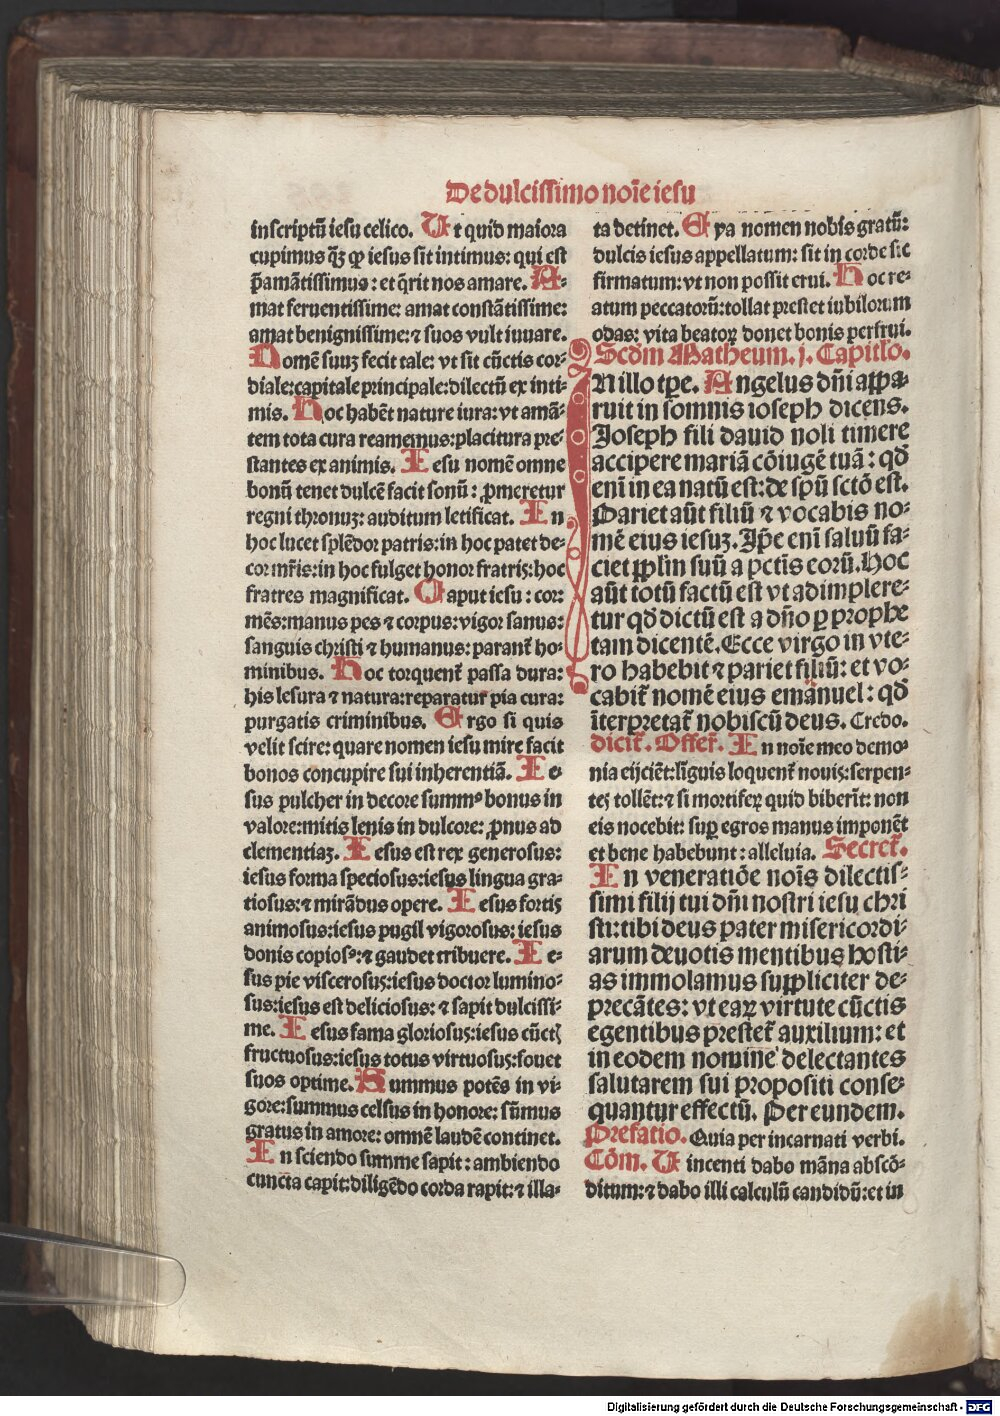 De dulcissimo noĩe iesu
inscriptū iesu celico. Ut quid maiora
cupimus q̄ȝ ꝙ iesus sit intimus: qui est
p̄amātissimus: et q̄rit nos amare. A-
mat feruentissime: amat constātissime:
amat benignissime: ⁊ suos vult iuuare.
Nomē suuȝ fecit tale: vt sit cūctis cor-
diale: capitale principale: dilectū ex inti-
mis. Hoc habēt nature iura: vt amā-
tem tota cura reamemus: placitura pre-
stantes ex animis. Iesu nomē omne
bonū tenet dulcē facit sonū: ꝓmeretur
regni thronuȝ: auditum letificat. In
hoc lucet splēdor patris: in hoc patet de-
cor mr̄is: in hoc fulget honor fratris: hoc
fratres magnificat. Caput iesu: cor:
mēs: manus pes ⁊ corpus: vigor sanus:
sanguis christi ⁊ humanus: parant̄ ho-
minibus. Hoc torquent̄ passa dura:
his lesura ⁊ natura: reparatur pia cura:
purgatis criminibus. Ergo si quis
velit scire: quare nomen iesu mire facit
bonos concupire sui inherentiā. Ie-
sus pulcher in decore summꝰ bonus in
valore: mitis lenis in dulcore: ꝓnus ad
clementiaȝ. Iesus est rex generosus:
iesus forma speciosus: iesus lingua gra-
tiosus: ⁊ mirādus opere. Iesus fortis
animosus: iesus pugil vigorosus: iesus
donis copiosꝰ: ⁊ gaudet tribuere. Ie-
sus pie viscerosus: iesus doctor lumino-
sus: iesus est deliciosus: ⁊ sapit dulcissi-
me. Iesus fama gloriosus: iesus cūctis
fructuosus: iesus totus virtuosus: fouet
suos optime. Summus potēs in vi-
gore: summus celsus in honore: sūmus
gratus in amore: omnē laudē continet.
In sciendo summe sapit: ambiendo
cuncta capit: diligēdo corda rapit: ⁊ illa-
ta detinet. Eya nomen nobis gratū:
dulcis iesus appellatum: sit in corde sic
firmatum: vt non possit erui. Hoc re-
atum peccatorū: tollat prestet iubilorum
odas: vita beatoꝝ donet bonis perfrui.
Scdm Matheum. j. Capitlo.
IN illo tp̄e. Angelus dn̄i appa-
ruit in somnis ioseph dicens.
Joseph fili dauid noli timere
accipere mariā cōiugē tuā: qd
enī in ea natū est: de spū sctō est.
Pariet aūt filiū ⁊ vocabis no-
mē eius iesuȝ. Ip̄e enī saluū fa-
ciet pplm̄ suū a pctīs eorū. Hoc
aūt totū factū est vt adimplere-
tur qd dictū est a dn̄o ꝑ prophe
tam dicentē. Ecce virgo in vte-
ro habebit ⁊ pariet filiū: et vo-
cabit̄ nomē eius emānuel: qd
īterpretat̄ nobiscū deus. Credo.
dicit̄. Offer̄. In noīe meo demo-
nia eijciēt: līguis loquent̄ nouis: serpen-
tes tollēt: ⁊ si mortiferꝝ quid biberīt: non
eis nocebit: suꝑ egros manus imponēt
et bene habebunt: alleluia. Secret̄.
In veneratiōe noīs dilectis-
simi filij tui dn̄i nostri iesu chri
sti: tibi deus pater misericordi-
arum deuotis mentibus hosti-
as immolamus suppliciter de-
precātes: vt eaꝝ virtute cūctis
egentibus prestet̄ auxilium: et
in eodem nomine delectantes
salutarem sui propositi conse-
quantur effectū. Per eundem.
Prefatio. Quia per incarnati verbi.
Cōm. Uincenti dabo māna abscō-
ditum: ⁊ dabo illi calculū candidū: et in
Digitalisierung gefördert durch die Deutsche Forschungsgemeinschaft - DFG